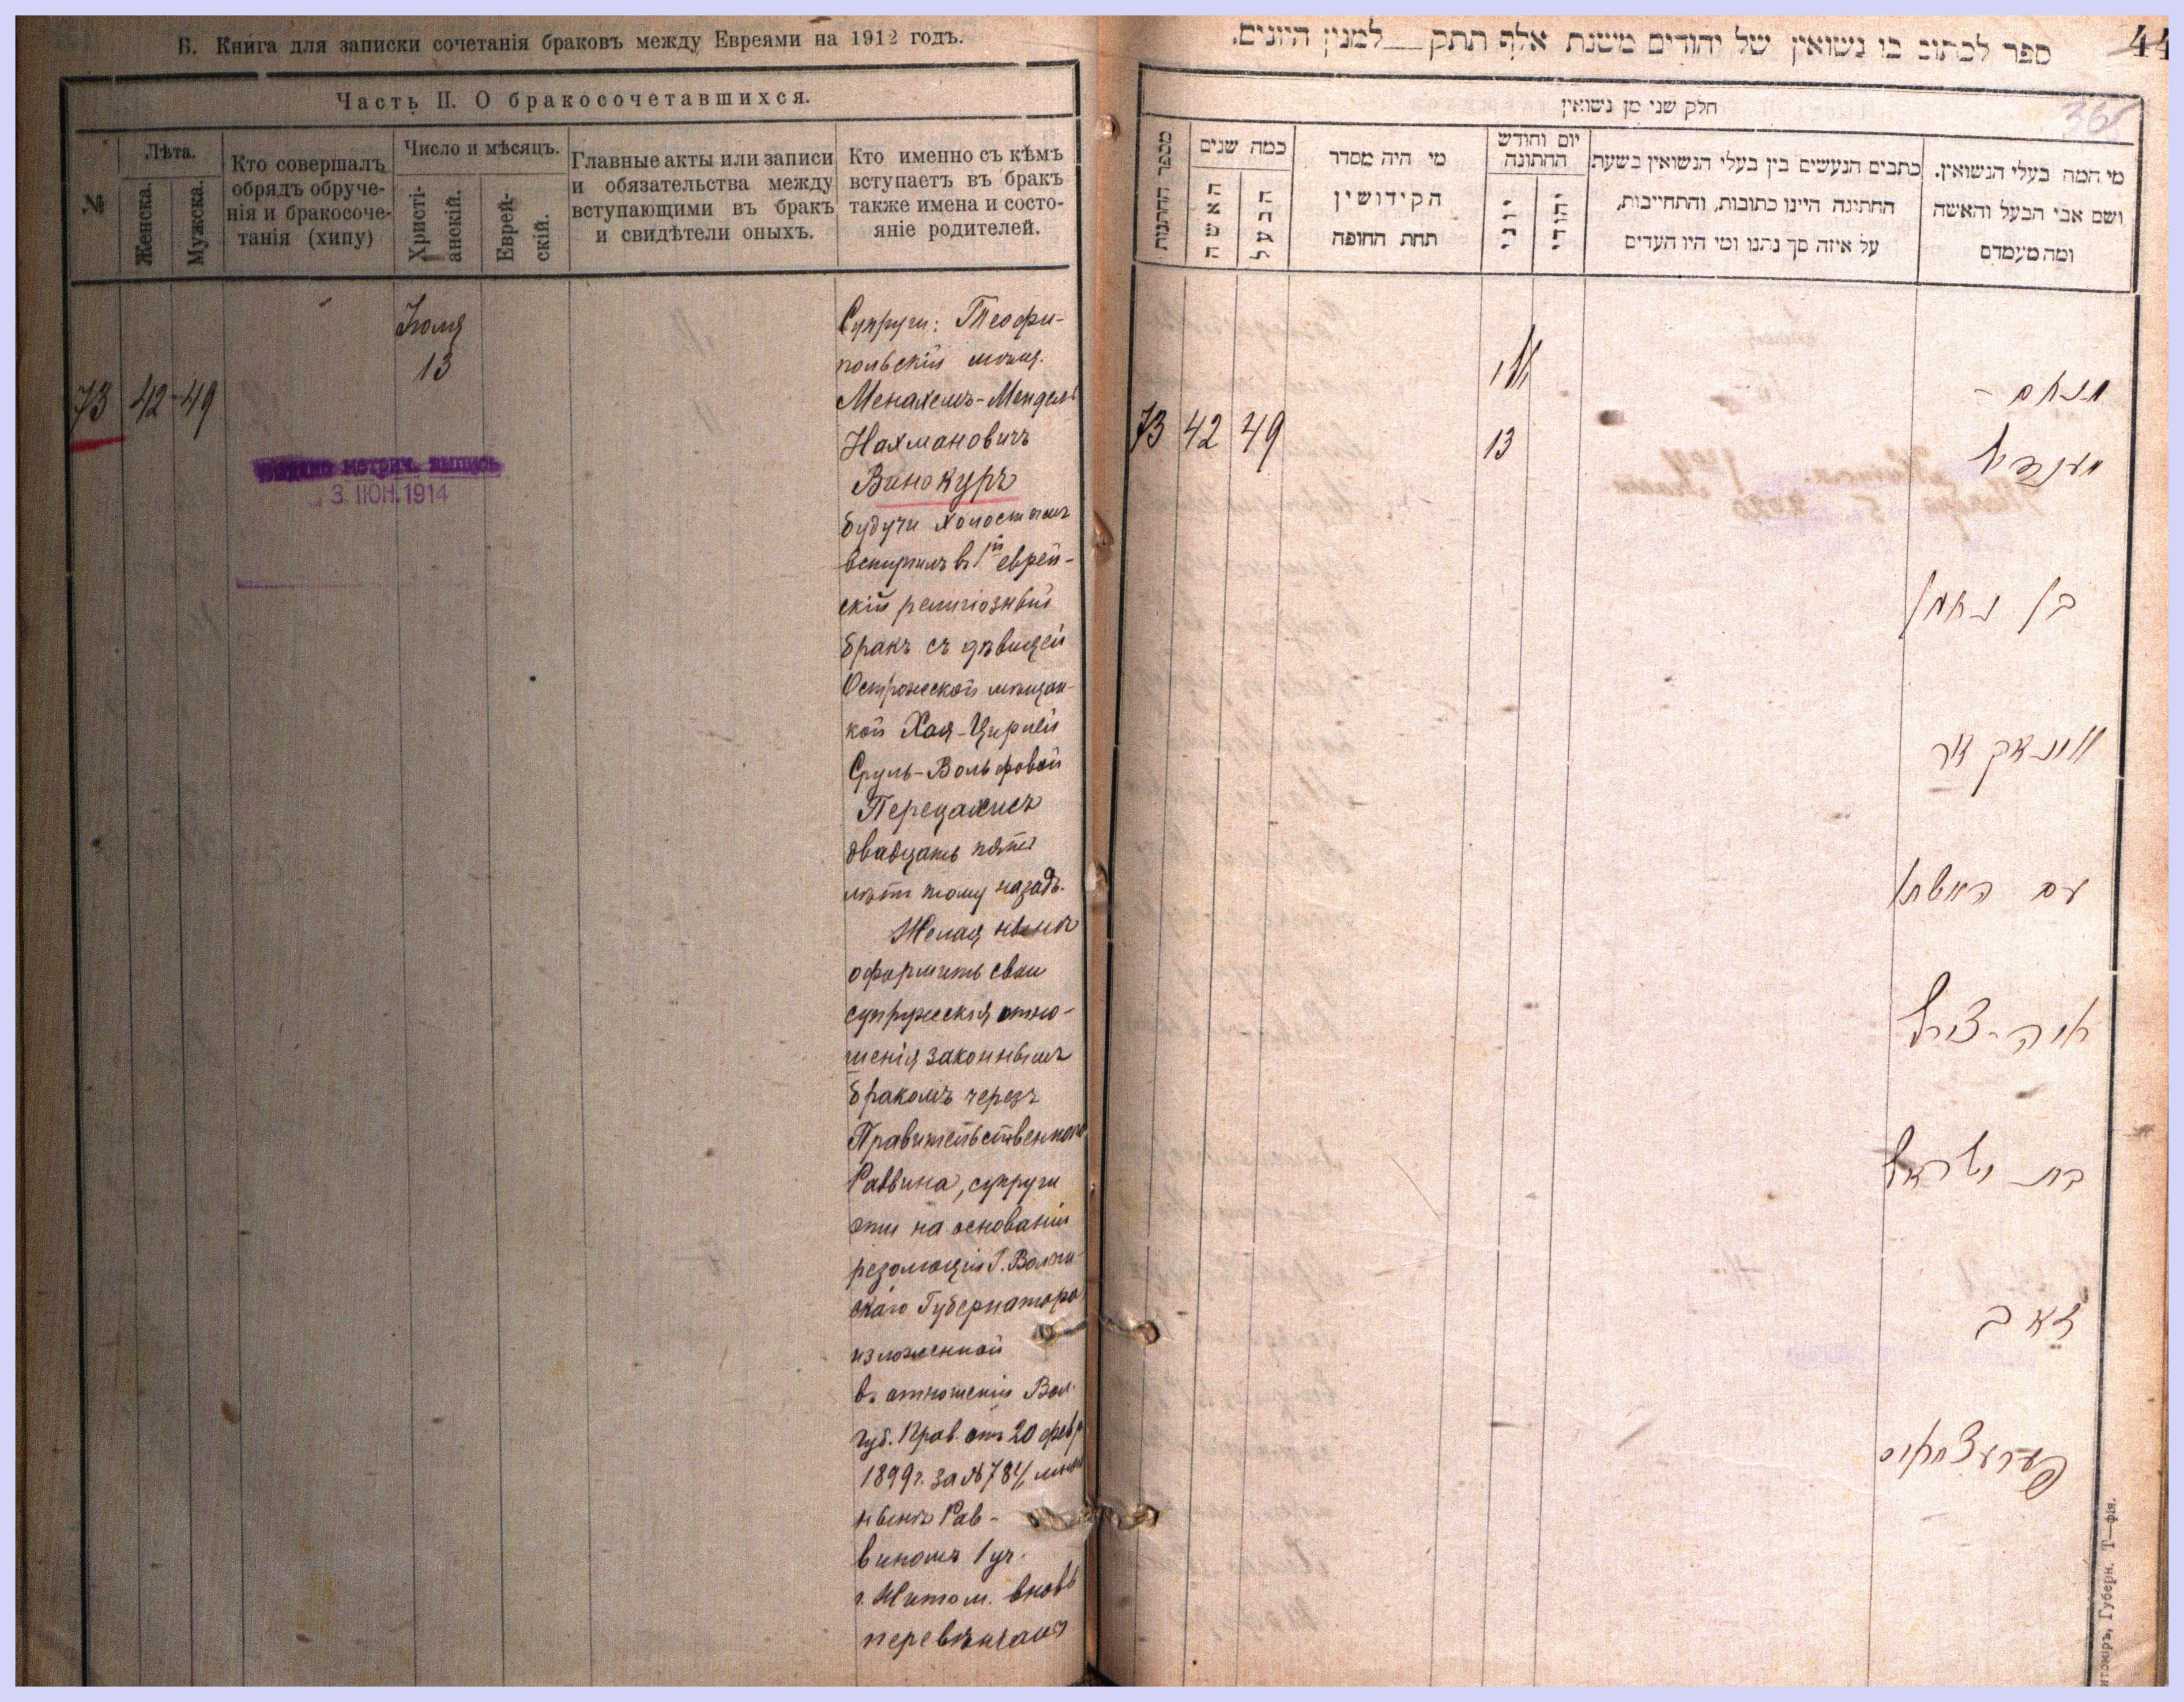 Б. Книга для записки сочетанія браковъ между Евреями на 1912 годъ.
Часть II. О бракосочетавшихся.
№
Лѣта.
Женска.
Мужска.
Кто совершалъ
обрядъ обруче-
нія и бракосоче-
танія (хипу)
Число и мѣсяцъ.
Христі-
анскій.
Еврей-
скій.
Главные акты или записи
и обязательства между
вступающими въ бракъ
и свидѣтели оныхъ.
Кто именно съ кѣмъ
вступаетъ въ бракъ
также имена и состо-
яніе родителей.
73 42 - 49
13
метрич. выпись
3. ІЮН. 1914
Супруги: Теофи-
польскій мѣщ.
Менахемъ-Мендель
Нахмановичъ
Винокуръ
будучи холостымъ
вступилъ въ 1й еврей-
скій религіозный
бракъ съ дѣвицей
Острожской мѣщан-
кой Хая-Цирлей
Сруль-Вольфовой
Перецахисъ
двадцать пять
лѣтъ тому назадъ.
Желая нынѣ
оформить свои
супружескія отно-
шенія законнымъ
бракомъ черезъ
Правительственнаго
Раввина, супруги
эти на основаніи
резолюціи Г. Волын-
скаго Губернатора
изложенной
въ отношеніи Вол.
Губ. Прав. отъ 20 февр
1899 г. за №784,
нынѣ Рав-
виномъ 1 уч.
г. Житом. вновь
перевѣнчаны
ספר לכתוב בו נשואין של יהודים משנת אלף תתק למנין היונים.
44
36
חלק שני מן נשואין
מספר החתנות
כמה שנים
האשה
הבעל
מי היה מסדר
הקידושין
תחת החופה
יום וחודש
החתונה
יוני
יהודי
כתבים הנעשים בין בעלי הנשואין בשעת
החתינה היינו כתובות, והתחייבות,
על איזה סך נתנו ומי היו העדים
מי המה בעלי הנשואין.
ושם אבי הבעל והאשה
ומה מעמדם
73 42 49
13
מנחם -
מענדיל
בן נחמן
ווינאקור
עם
חיה-צירל
בת ישראל
זאב
פערעצחיס
Губерн. Т—фія.